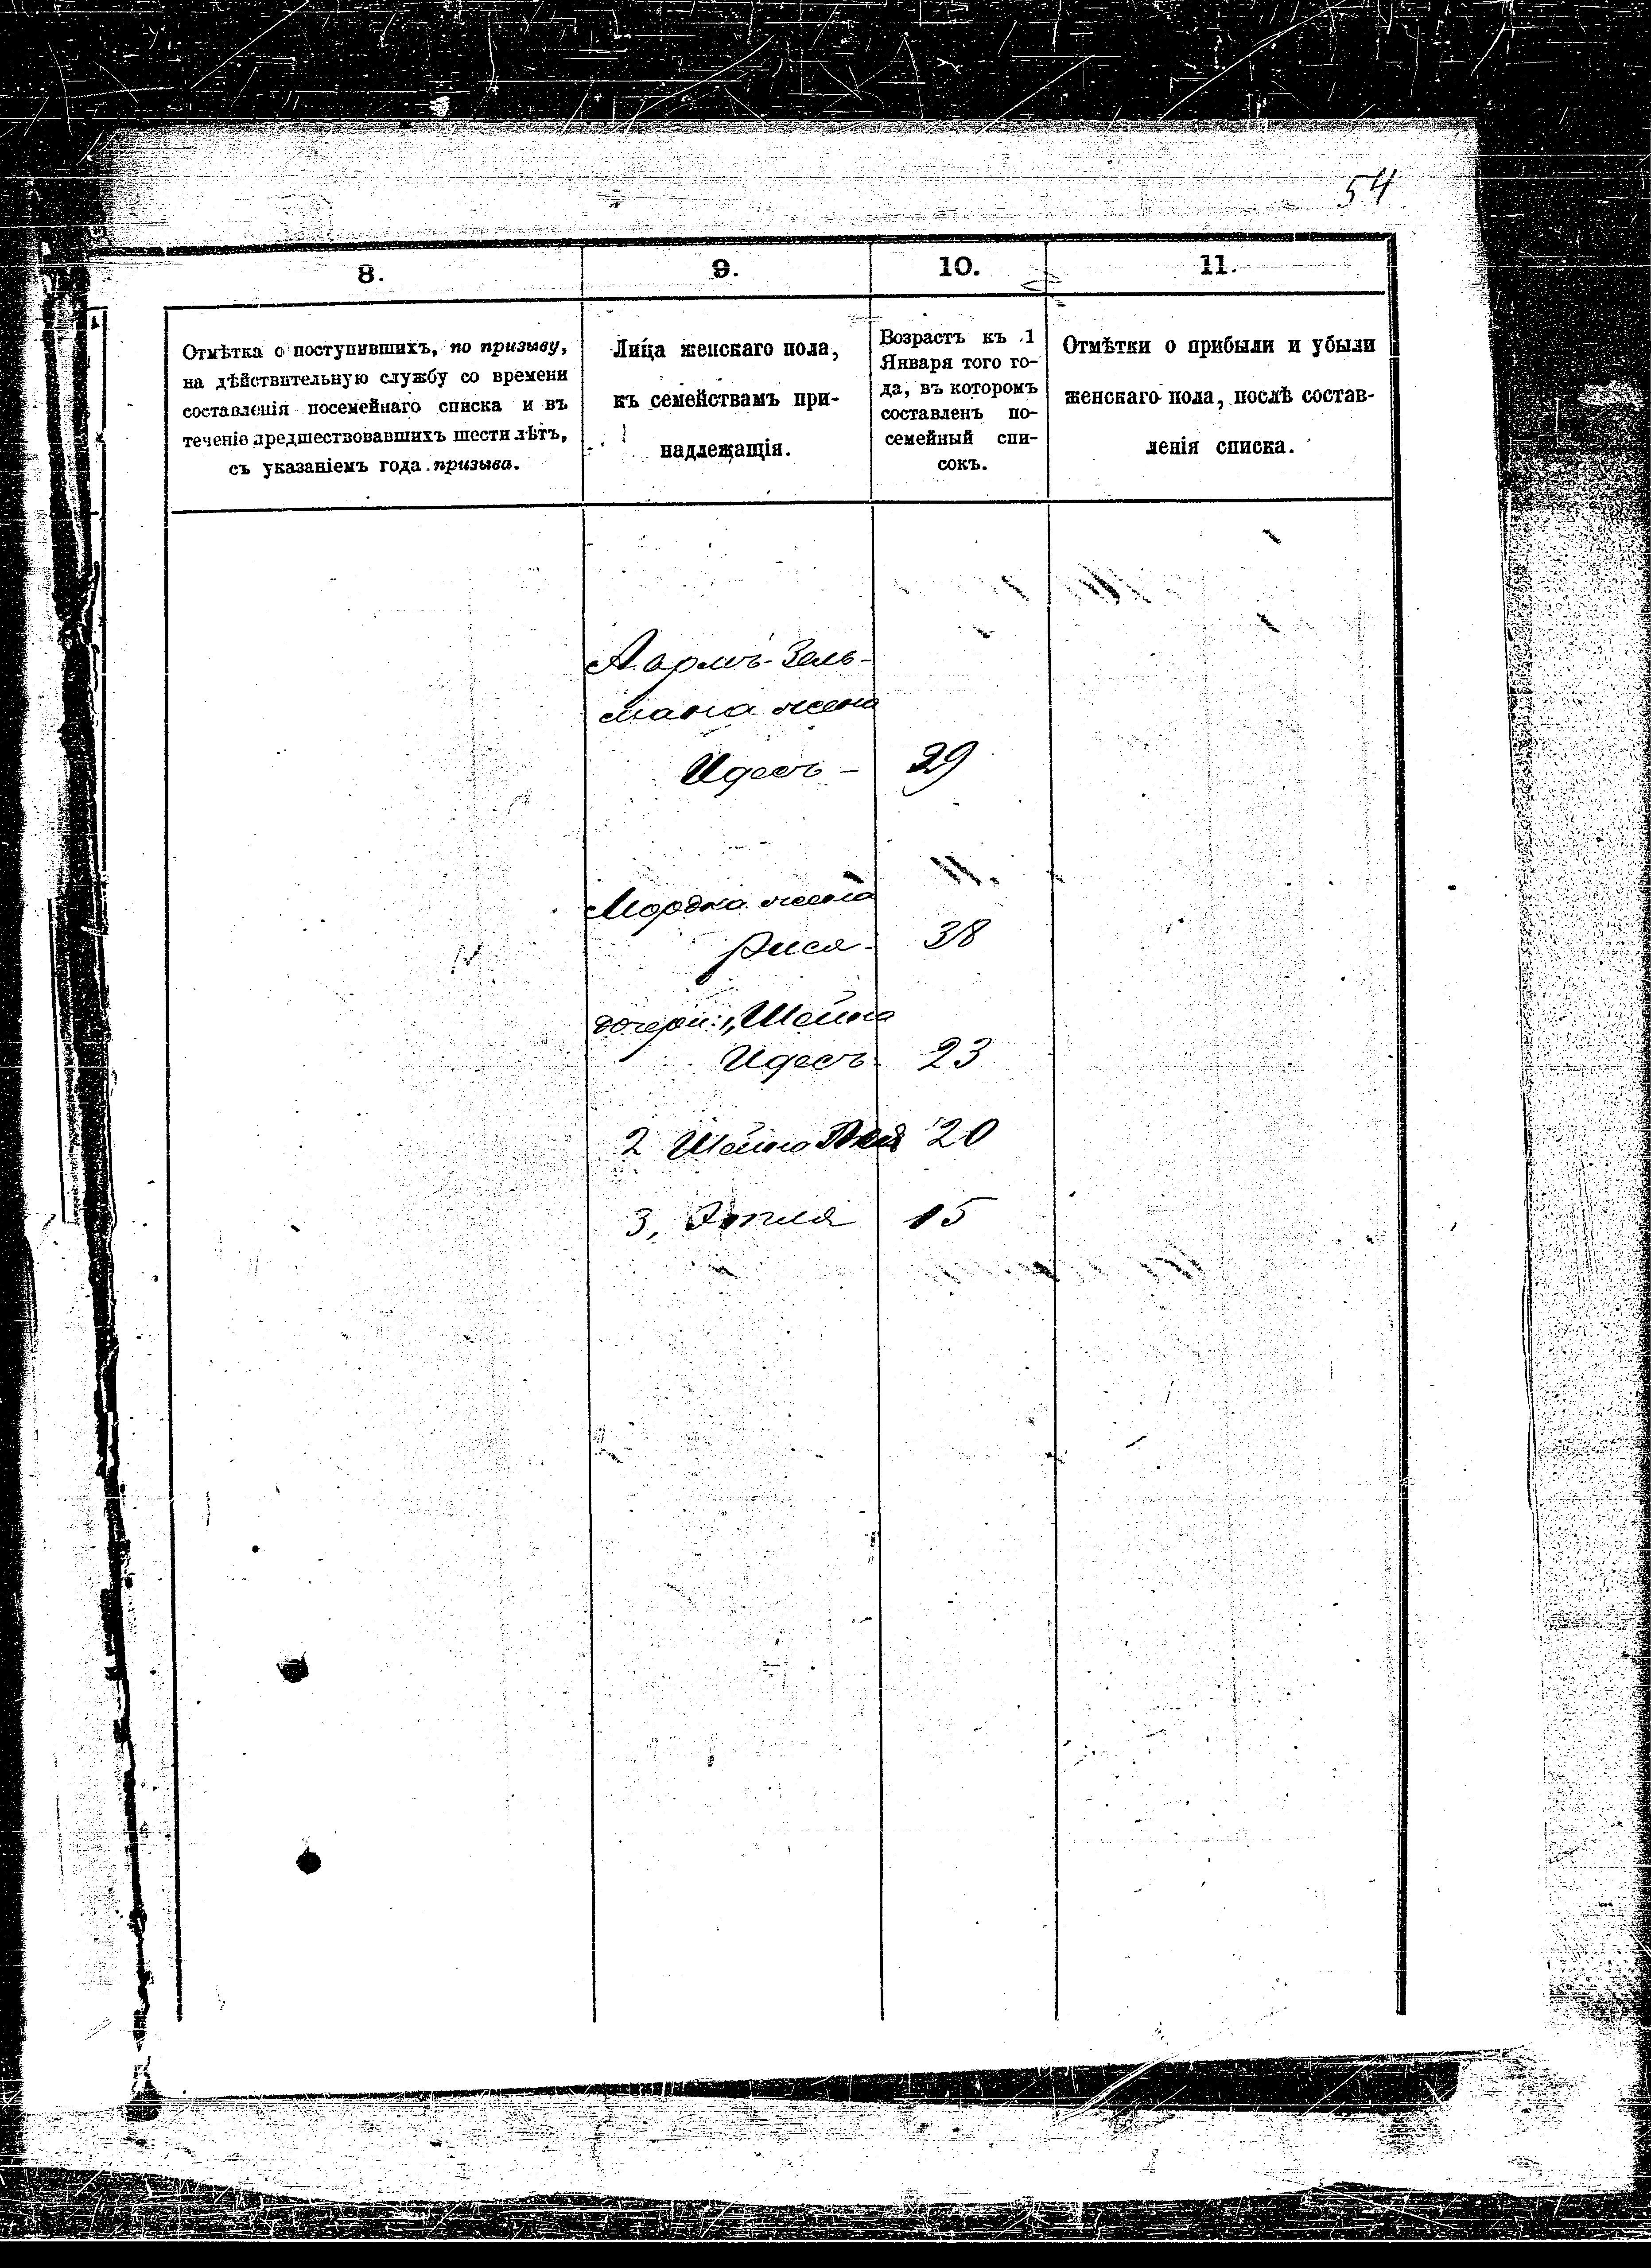 54
8.
9.
10.
11.
Отмѣтка о поступившихъ, по призыву,
на дѣйствительную службу со времени
составленія посемейнаго списка и въ
теченіе предшествовавшихъ шести лѣтъ,
съ указаніемъ года призыва.
Лица женскаго пола,
къ семействамъ при-
надлежащія.
Возрастъ къ 1
Января того го-
да, въ которомъ
составленъ по-
семейный спи-
сокъ.
Отмѣтки о прибыли и убыли
женскаго пола, послѣ состав-
ленія списка.
Ааронъ-Зель-
мана жена
Идесъ - 29
Мордка жена
Рися - 38
дочери: 1, Шейна
Идесъ 23
2 Шейна 20
3, Этля 15